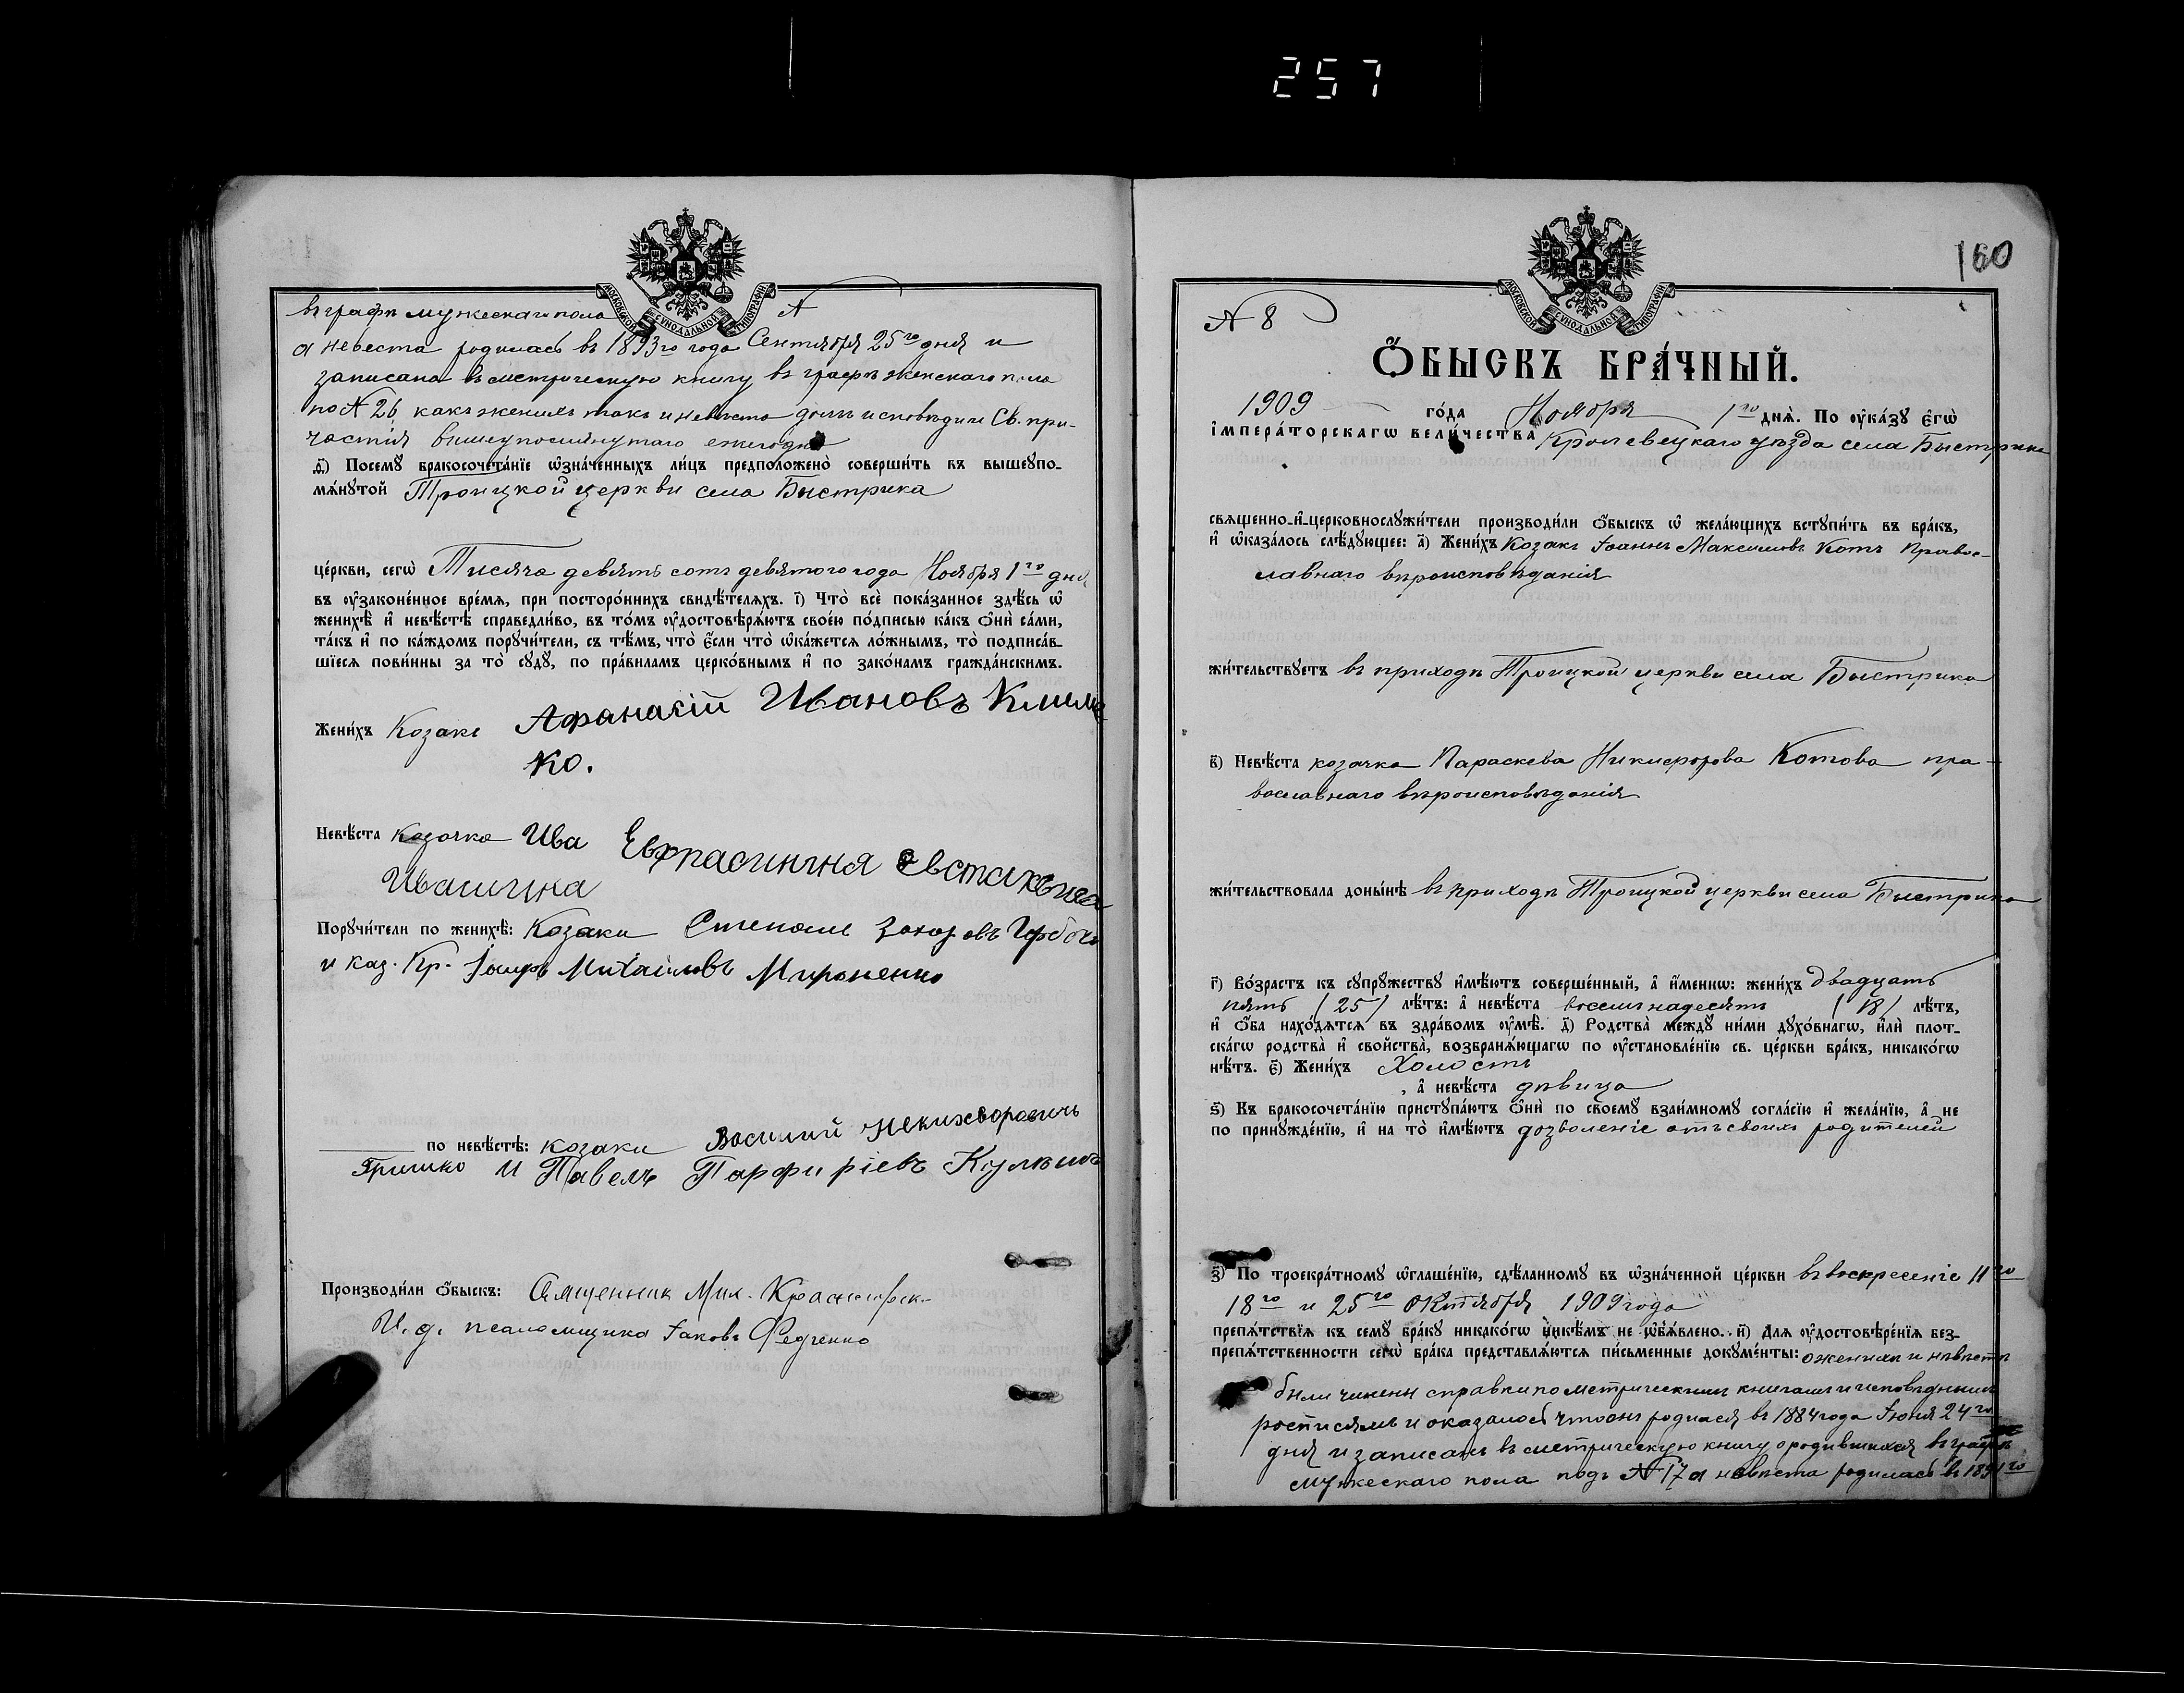 257
МОСКОВСКОЙ СѴНОДАЛЬНОЙ ТИПОГРАФІИ
въ графѣ мужескаго пола № 
а невеста родилась въ 1893го года Сентября 25го дня и
записана въ метрическую книгу въ графѣ женскаго пола
по № 26, какъ женихъ такъ и невѣста были исповѣди и Св. при-
частія вышеупомянутаго ежегодно
ѳ҃) Посемꙋ̀ бракосочета́нїе ѡ҆зна́ченныхъ ли́цъ предположено̀ соверши́ть въ вышеꙋпо-
мѧ́нꙋтой Троицкой церкви села Быстрика
це́ркви, сегѡ̀ Тысяча девять сотъ девятого года Ноября 1го дня
въ ᲂу҆законе́нное вре́мѧ, при посторо́ннихъ свидѣ́телѧхъ. і҃) Что̀ всѐ пока́занное здѣ́сь ѡ҆
женихѣ̀ и҆ невѣ́стѣ справедли́во, въ то́мъ ᲂу҆достовѣрѧ́ютъ свое́ю по́дписью ка́къ ѻ҆нѝ са́ми,
та́къ и҆ по ка́ждомъ порꙋчи́тели, съ тѣ́мъ, что̀ є҆́сли что̀ ѡ҆ка́жетсѧ ло́жнымъ, то̀ подписа́в-
шїесѧ пови́нны за то̀ сꙋдꙋ̀, по пра́виламъ церко́внымъ и҆ по зако́намъ гражда́нскимъ.
Жени́хъ Козакъ Афанасій Ивановъ Климе
ко.
Невѣ́ста козачка Ива Евхрасиния Евстахьива
Ивашина
Порꙋчи́тели по женихѣ̀: Козаки Степанъ Захаровъ
и каз. Кр. Михаиловъ Мироненко
по невѣ́стѣ: козаки Василий Некихворовичъ
Гришко и Павелъ Парфиріевъ
Производи́ли ѻ҆́быскъ: Священник Мих.
И. д. псаломщика Іаковъ Федченко
160
МОСКОВСКОЙ СѴНОДАЛЬНОЙ ТИПОГРАФІИ
№ 8
Ѻ҆́БЫСКЪ БРА́ЧНЫЙ.
1909 го́да Ноября 1го днѧ̀. По ᲂу҆ка́зꙋ є҆гѡ̀
і҆мпера́торскагѡ вели́чества Кролевецкаго уѣзда села Быстрика
свѧщенно-и҆-церковнослꙋжи́тели производи́ли ѻ҆́быскъ ѡ҆ жела́ющихъ встꙋпи́ть въ бра́къ,
и҆ ѡ҆каза́лось слѣ́дꙋющее: а҃) Жени́хъ Козакъ Іоаннъ Максимовъ Котъ Правос-
лавнаго вѣроисповѣданія
жи́тельствꙋетъ въ приходѣ Троицкой церкви села Быстрика
в҃) Невѣ́ста козачка Параскева Никифорова Котова пра-
вославнаго вѣроисповѣданія
жи́тельствовала доны́нѣ въ приходѣ Троицкой церкви села Быстрика
г҃) Во́зрастъ къ сꙋпрꙋ́жествꙋ и҆мѣ́ютъ соверше́нный, а҆ и҆́меннѡ: жени́хъ двадцать
пять (25) лѣ́тъ: а҆ невѣ́ста восемнадесять (18) лѣ́тъ,
и҆ ѻ҆́ба нахо́дѧтсѧ въ здра́вомъ ᲂу҆мѣ̀. д҃) Родства̀ междꙋ̀ ни́ми дꙋхо́внагѡ, и҆лѝ плот-
ска́гѡ родства̀ и҆ свойства̀, возбранѧ́ющагѡ по ᲂу҆становле́нїю св. це́ркви бра́къ, никако́гѡ
нѣ́тъ. є҃) Жени́хъ Холостъ
, а҆ невѣ́ста дѣвица
ѕ҃) Къ бракосочета́нїю пристꙋпа́ютъ ѻ҆нѝ по своемꙋ̀ взаи́мномꙋ согла́сїю и҆ жела́нїю, а҆ не
по принꙋжде́нїю, и҆ на то̀ и҆мѣ́ютъ дозволеніе отъ своихъ родителей
з҃) По троекра́тномꙋ ѡ҆глаше́нїю, сдѣ́ланномꙋ въ ѡ҆зна́ченной це́ркви въ воскресеніе 11го
18го и 25го Октября 1909 года
препѧ́тствїѧ къ семꙋ̀ бра́кꙋ никако́гѡ никѣ́мъ не ѡ҆б̾ѧ́влено. и҃) Длѧ ᲂу҆достовѣре́нїѧ без-
препѧ́тственности сегѡ̀ бра́ка представлѧ́ютсѧ пи́сьменные докꙋме́нты: о женихѣ и невѣстѣ
были чинены справки по метрическимъ книгамъ и исповѣднымъ
росписямъ и оказалось что онъ родился въ 1884 года Іюня 24го
дня и записанъ въ метрическую книгу о родившихся въ графѣ
мужескаго пола подъ № 17 а невѣста родилась въ 1891го